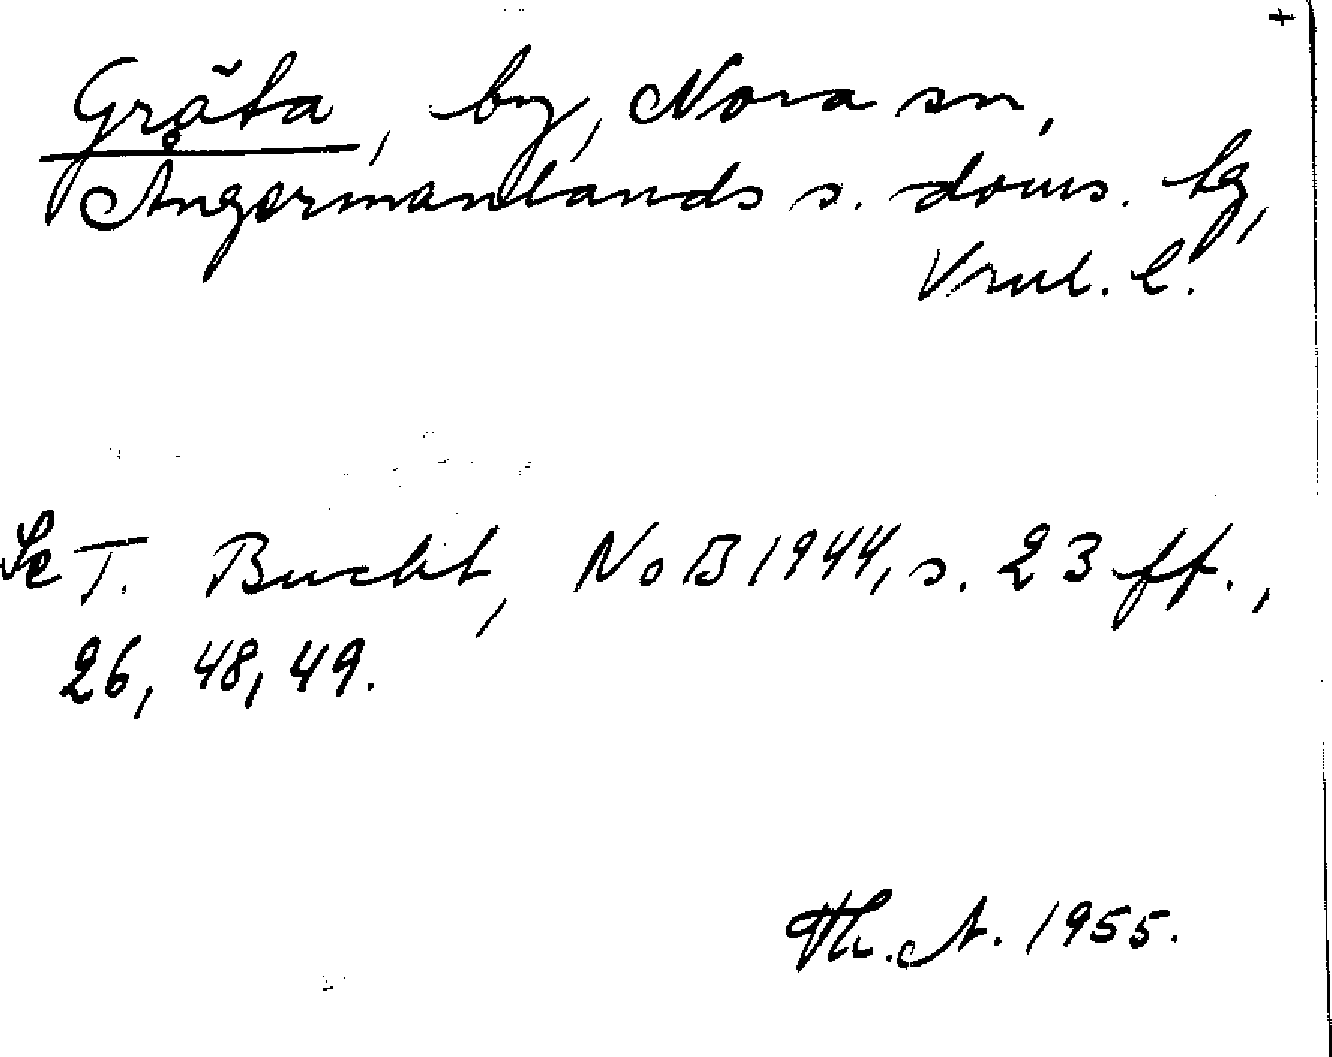 +
Gräta, by, Nora sn,
Ångermanlands s. doms. lg,
Vrnl. l.
Se T. Bucht, NoB 1944, s. 23 ff.,
26, 48, 49.
Th. A. 1955.